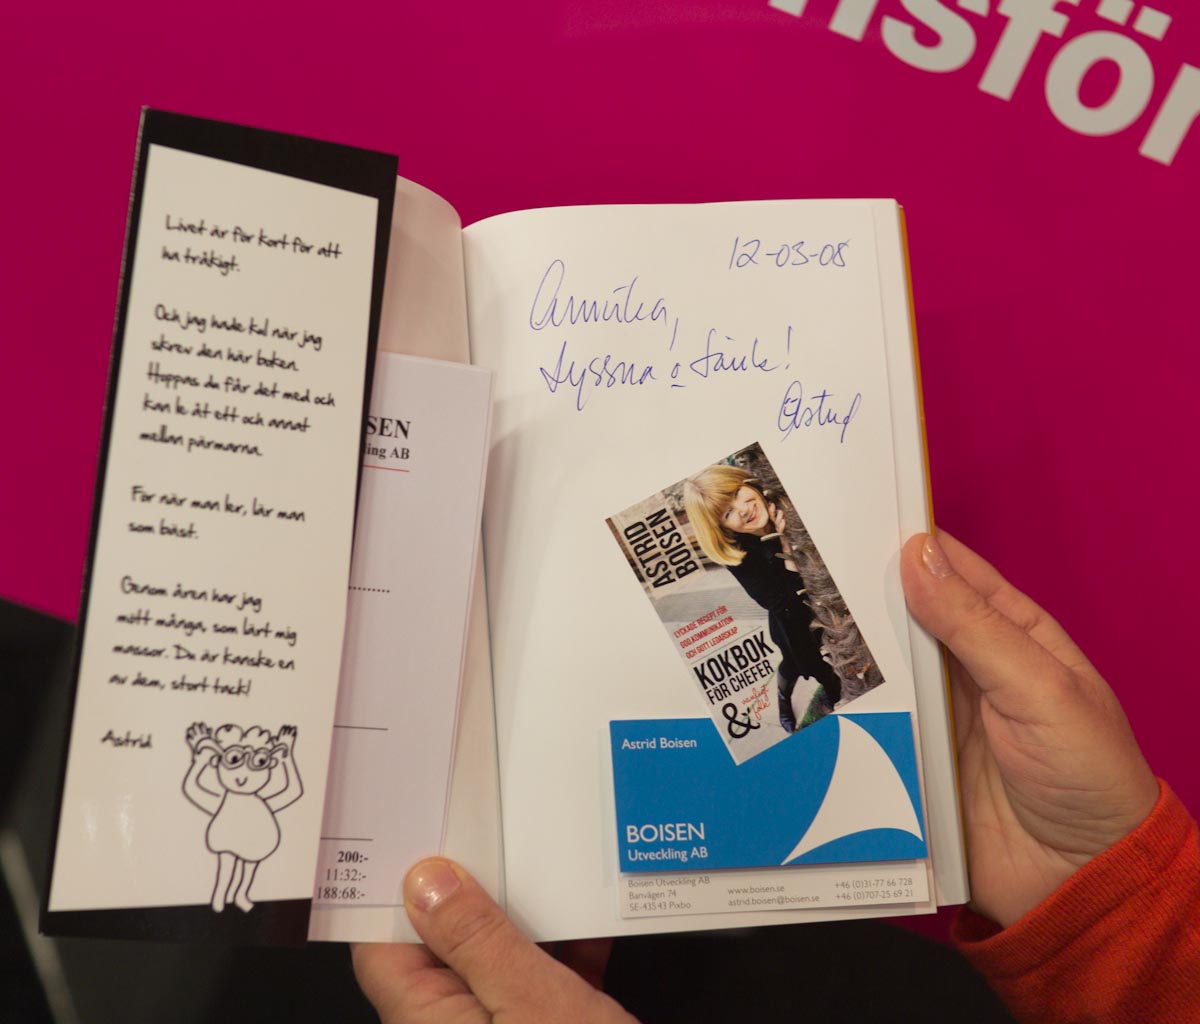 nsför
Livet är för kort för att
ha tråkigt.
Och jag hade kul när jag
skrev den här boken.
Hoppas du får det med och
kan le åt ett och annat
mellan pärmarna.
För när man ler, lär man
som bäst.
Genom åren har jag
mött många, som lärt mig
massor. Du är kanske en
av dem, stort tack!
Astrid
ISEN
ing AB
200:-
11:32:-
188:68:-
12-03-08
Annika,
Lyssna o tänk!
Astrid
ASTRID
BOISEN
LYCKADE RECEPT FÖR
GOD KOMMUNIKATION
OCH GOTT LEDARSKAP
KOKBOK
FÖR CHEFER
& vanligt
folk
Astrid Boisen
BOISEN
Utveckling AB
Boisen Utveckling AB
Banvägen 74
SE-435 43 Pixbo
www.boisen.se
astrid.boisen@boisen.se
+46 (0)31-77 66 728
+46 (0)707-25 69 21